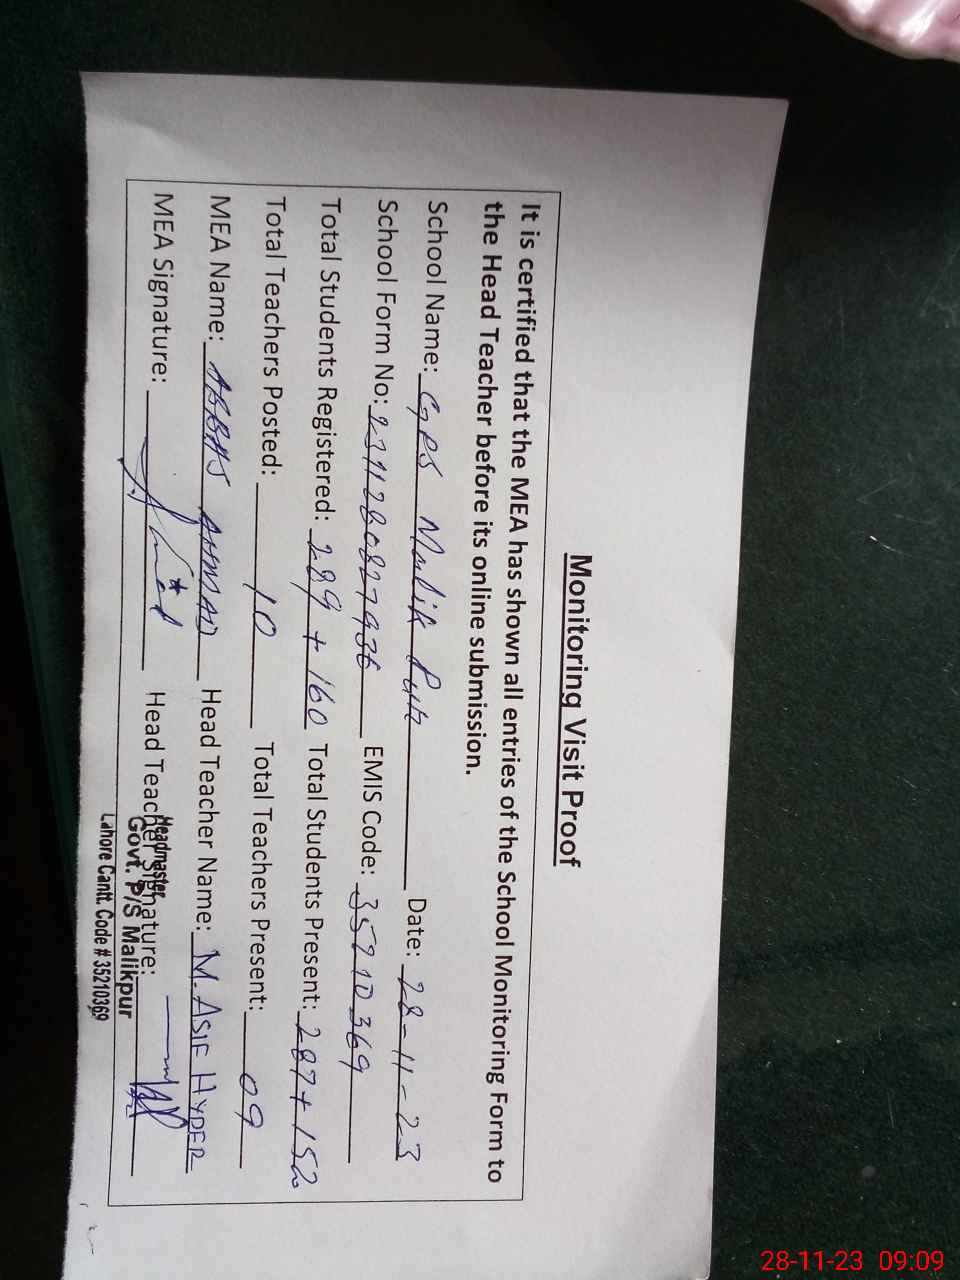 Monitoring Visit Proof
It is certified that the MEA has shown all entries of the School Monitoring Form to
the Head Teacher before its online submission.
School Name: GPS Malik Pur Date: 28-11-23
School Form No: EMIS Code: 35210369
Total Students Registered: 289 + 160 Total Students Present: 287 + 152
Total Teachers Posted: 10 Total Teachers Present: 09
MEA Name: ABBAS AHMAD Head Teacher Name: M. ASIF HYDER
MEA Signature: Head Teacher Signature:
Headmaster
Govt. P/S Malikpur
Lahore Cantt. Code # 35210369
28-11-23 09:09